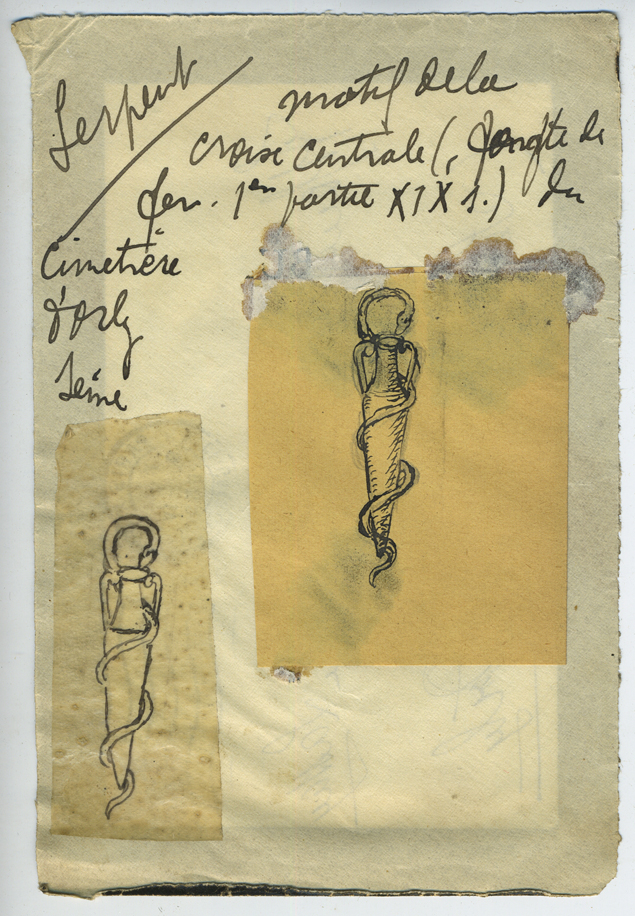 Serpent
motif de la
croix centrale (, fonte de
fer. 1er partie XIX s.) du
Cimetière
d'Orly
Seine